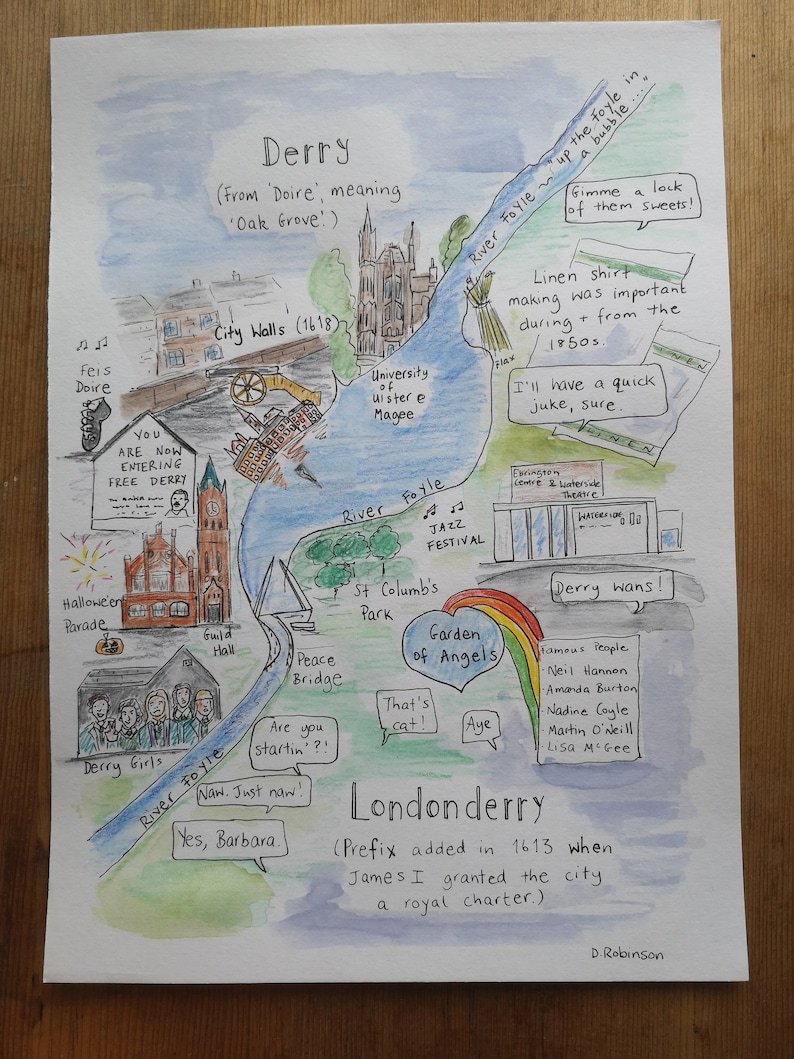 Derry
(From 'Doire', meaning
'Oak Grove'.)
River Foyle ~ "up the Foyle in
a bubble...."
Gimme a lock
of them sweets!
City Walls (1618)
Linen shirt
making was important
during + from the
1850s.
Flax
LINEN
LINEN
Feis
Doire
University
of
Ulster @
Magee
I'll have a quick
juke, sure.
YOU
ARE NOW
ENTERING
FREE DERRY
River Foyle
JAZZ
FESTIVAL
Ebrington
Centre & Waterside
Theatre
WATERSIDE
St Columb's
Park
Derry wans!
Hallowe'en
Parade
Guild
Hall
Garden
of Angels
Famous People
· Neil Hannon
· Amanda Burton
· Nadine Coyle
· Martin O'Neill
· Lisa McGee
Peace
Bridge
That's
cat!
Aye
Derry Girls
River Foyle
Are you
startin'?!
Naw. Just naw!
Yes, Barbara.
Londonderry
(Prefix added in 1613 when
James I granted the city
a royal charter.)
D.Robinson